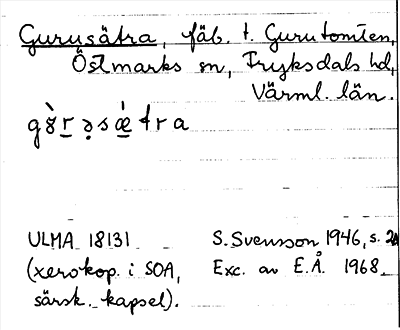 Gurusätra, fäb. t. Gurutomten,
Östmarks sn, Fryksdals hd,
Värml. län.
gȣ̀r̲ə̣sǽ̲tra
ULMA 18131 S. Svensson 1946, s. 20
(xerokop. i SOA, Exc. av E.Å. 1968.
särsk. kapsel).